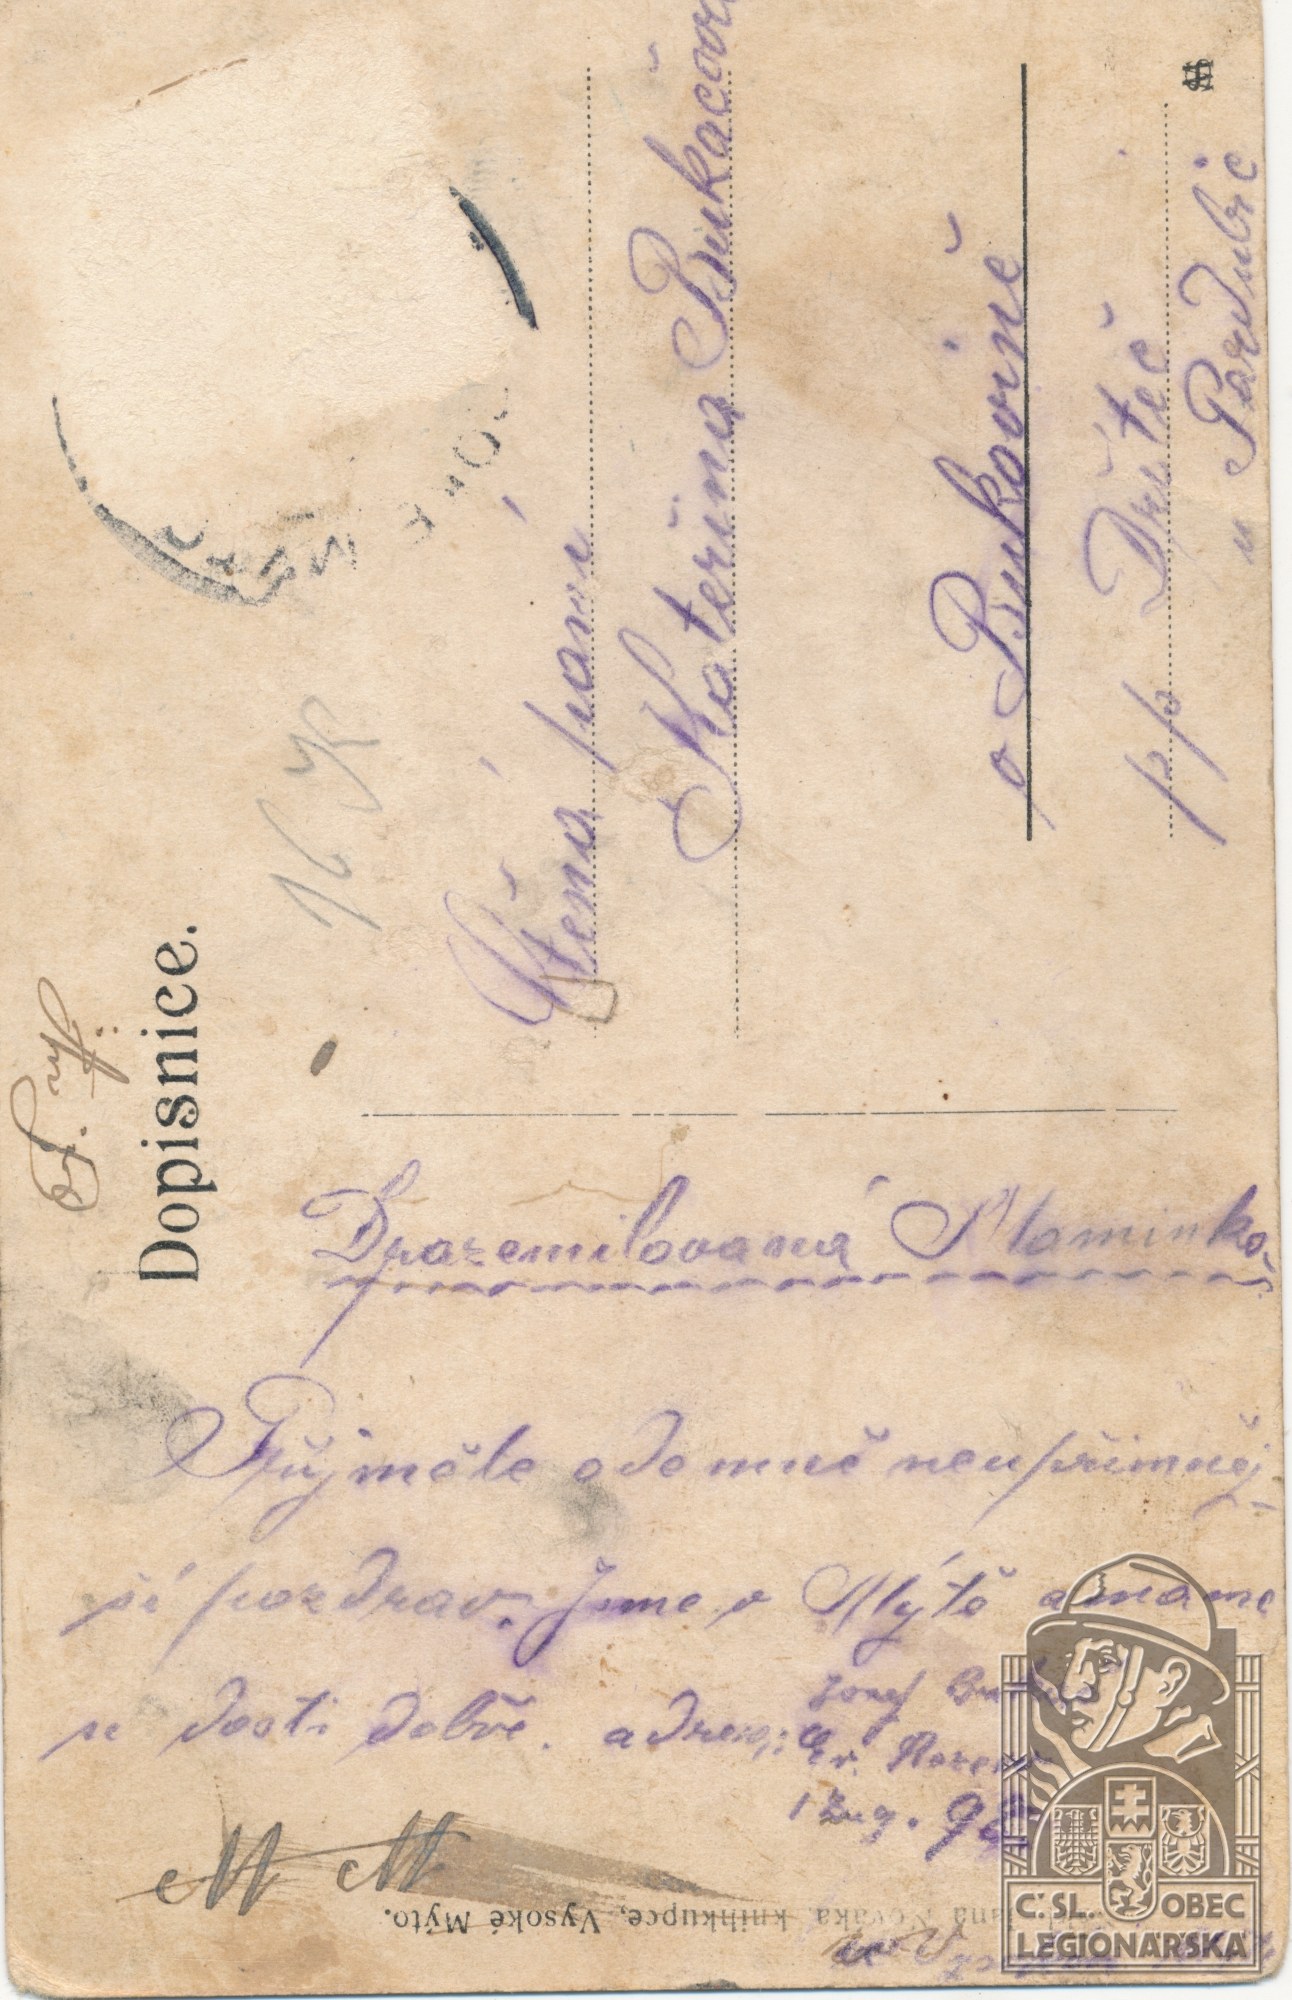 Dopisnice.
16
Ctěná paní
Kateřina Bukačov
v Bukovině
pp Dříteč
u Pardubic
Drazemilovaná Maminko,
Přijměte odemně neupřimněj-
ší pozdrav. Jsme v Mýtě a máme
se dosti dobře. adresa: Josef
Er.
1 Zug. 98
knihkupce, Vysoké Mýto.
Č.SL. OBEC
LEGIONÁŘSKÁ